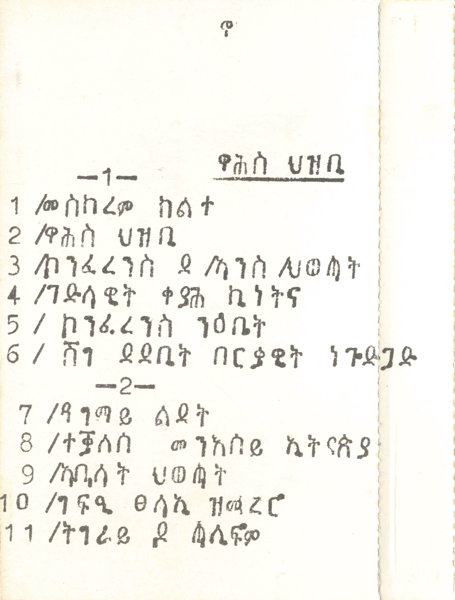 ዋሕስ ህዝቢ
—1—
1 /መስከረም ክልተ
2 /ዋሕስ ህዝቢ
3 /ኮንፈረንስ ደ/ኣንስ/ህወሓት
4 /ገድላዊት ቀያሕ ኪነትና
5 / ኮንፈረንስ ንዕቤት
6 / ሽገ ደደቢት በርቃዊት ነጉድጓድ
—2—
7 /ዳግማይ ልደት
8 / መንእሰይ ኢትዮጵያ
9 /ኣቢሳት ህወሓት
10 /ገፍዒ ፀላኢ ዝመረሮ
11 /ትግራይ